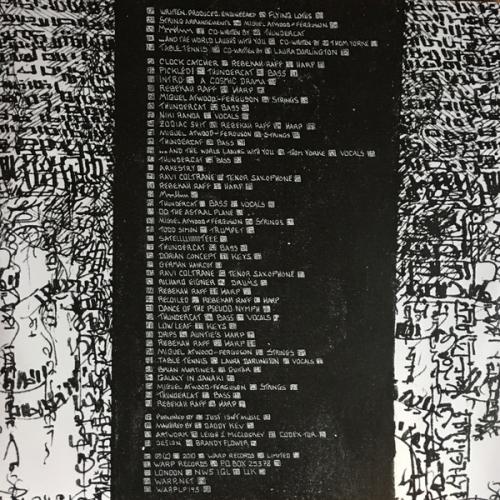 WRITTEN, PRODUCED, ENGINEERED FLYING LOTUS
STRING ARRANGEMENTS MIGUEL ATWOOD-FERGUSON
MmmHmm CO-WRITTEN BY THUNDERCAT
...AND THE WORLD LAUGHS WITH YOU CO-WRITTEN BY THOM YORKE
TABLE TENNIS CO-WRITTEN BY LAURA DARLINGTON
CLOCK CATCHER REBEKAH RAFF HARP
PICKLED! THUNDERCAT BASS
INTRO A COSMIC DRAMA
REBEKAH RAFF HARP
MIGUEL ATWOOD-FERGUSON STRINGS
THUNDERCAT BASS
NIKI RANDA VOCALS
ZODIAC SHIT REBEKAH RAFF HARP
MIGUEL ATWOOD-FERGUSON STRINGS
THUNDERCAT BASS
...AND THE WORLD LAUGHS WITH YOU THOM YORKE VOCALS
THUNDERCAT BASS
ARKESTRY
RAVI COLTRANE TENOR SAXOPHONE
REBEKAH RAFF HARP
MmmHmm
THUNDERCAT BASS VOCALS
DO THE ASTRAL PLANE
MIGUEL ATWOOD-FERGUSON STRINGS
TODD SIMON TRUMPET
SATELLLLIIIITEEE
THUNDERCAT BASS
DORIAN CONCEPT KEYS
GERMAN HAIRCUT
RAVI COLTRANE TENOR SAXOPHONE
RICHARD EIGNER DRUMS
REBEKAH RAFF HARP
RECOILED REBEKAH RAFF HARP
DANCE OF THE PSEUDO NYMPH
THUNDERCAT BASS VOCALS
LOW LEAF KEYS
DRIPS AUNTIE'S HARP
REBEKAH RAFF HARP
MIGUEL ATWOOD-FERGUSON STRINGS
TABLE TENNIS LAURA DARLINGTON VOCALS
BRIAN MARTINEZ GUITAR
GALAXY IN JANAKI
MIGUEL ATWOOD-FERGUSON STRINGS
THUNDERCAT BASS
REBEKAH RAFF HARP
PUBLISHED BY JUST ISN'T MUSIC
MASTERED BY DADDY KEV
ARTWORK LEIGH J. MCCLOSKEY CODEX-TOR
DESIGN BRANDY FLOWER
℗ © 2010 WARP RECORDS LIMITED
WARP RECORDS PO BOX 25378
LONDON NW5 1GL UK
WARP.NET
WARPLP195